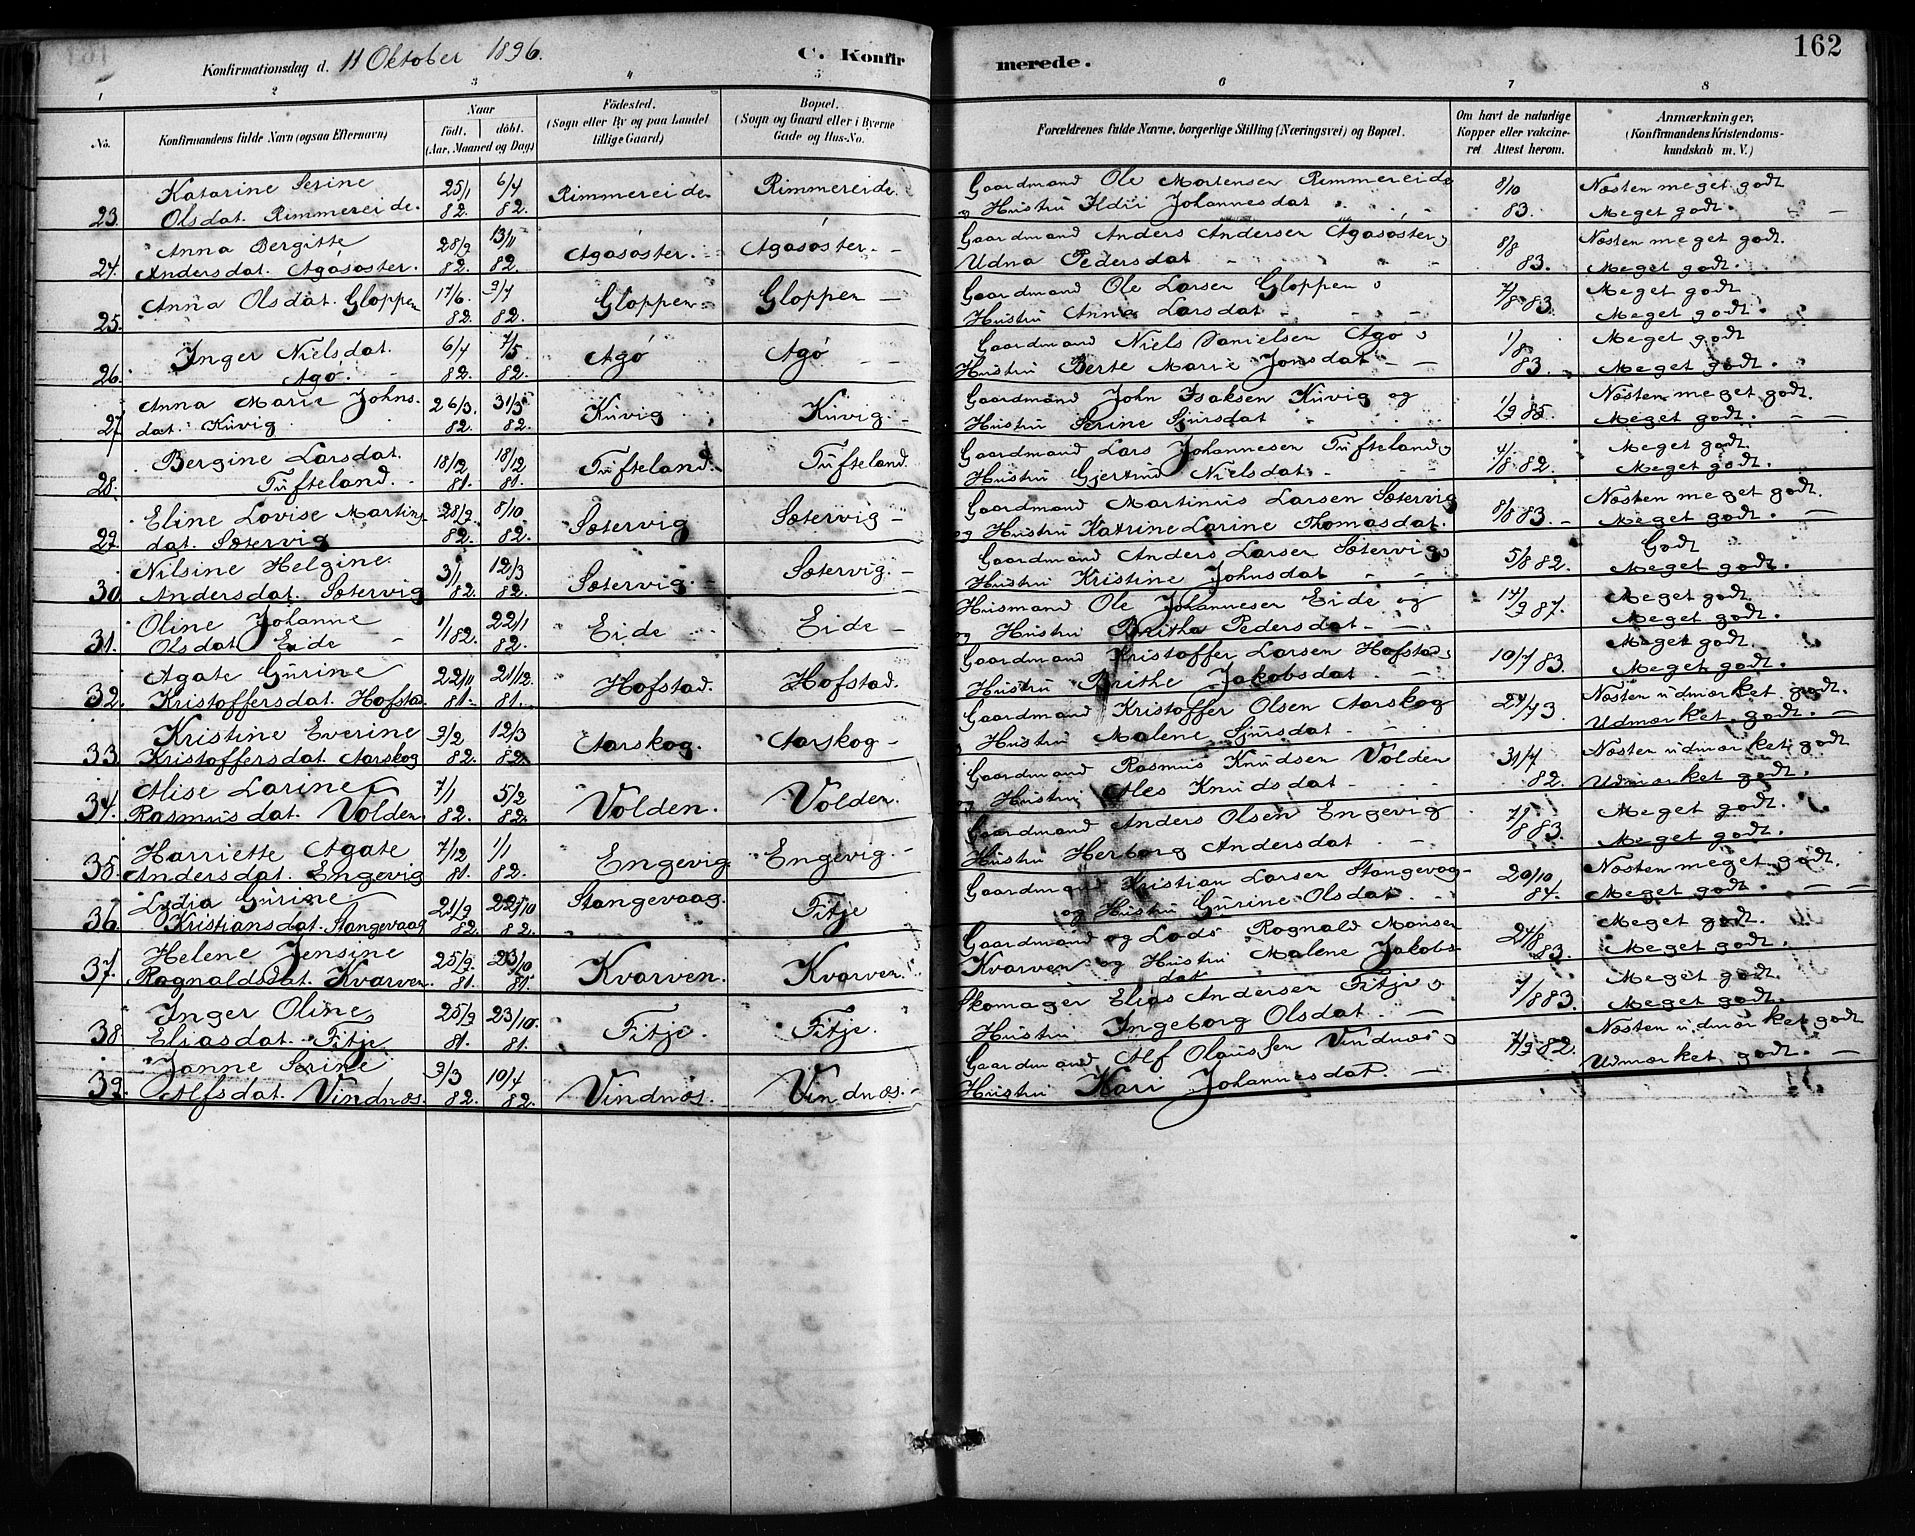 Konfirmationsdag d. 11 Oktober 1896.
C. Konfirmerede.
162
1 2 3 4 5 6 7 8
No.
Konfirmandens fulde Navn (ogsaa Efternavn)
Naar
født. døbt.
(Aar, Maaned og Dag)
Födested.
(Sogn eller By og paa Landet
tillige Gaard)
Bopæl.
(Sogn og Gaard eller i Byerne
Gade og Hus-No.
Forældrenes fulde Navne, borgerlige Stilling (Næringsvei) og Bopæl.
Om havt de naturlige
Kopper eller vakcine-
ret Attest herom.
Anmærkninger,
(Konfirmandens Kristendoms-
kundskab m. V.)
23. Katarine Serine 25/1 6/4 Rimmereide Rimmereide. Gaardmand Ole Mortensen Rimmereide 8/10 Næsten meget godt
Olsdat. Rimmereide. 82. 82. og Hustru Ildri Johannesdat 83. Meget godt.
24. Anna Bergitte 28/9 13/11 Agasøster. Agasøster. Gaardmand Anders Andersen Agasøster 8/8 Næsten meget godt.
Andersdat. Agasøster. 82. 82. Udna Pedersdat 83. Meget godt.
25. Anna Olsdat. Gloppen 17/6. 9/7 Gloppen Gloppen Gaardmand Ole Larsen Gloppen 7/8 83. Meget godt
82. 82. Hustru Anna Larsdat Meget godt.
26. Inger Nielsdat. 6/4 7/5 Agø Agø Gaardmand Niels Danielsen Agø 1/8 Meget godt
Agø. 82. 82. Hustru Berte Marie Jonsdat 83. Meget godt.
27. Anna Marie Johns- 26/3. 31/5 Kuvig Kuvig Gaardmand John Isaksen Kuvig og 1/9 85. Næsten meget godt.
dat. Kuvig 82. 82. Hustru Serine Sjursdat Meget godt.
28. Bergine Larsdat. 18/12 18/12 Tufteland. Tufteland Gaardmand Lars Johannesen Tufteland 4/8 82. Meget godt.
Tufteland. 81. 81. Hustru Gjertrud Nielsdat Meget godt.
29. Eline Lovise Martins- 28/9 8/10 Sætervig Sætervig Gaardmand Martinus Larsen Sætervig 8/8 83. Næsten meget godt.
dat. Sætervig 82. 82. og Hustru Katrine Larine Thomasdat. Meget godt.
30. Nilsine Helgine 3/1 12/3 Sætervig. Sætervig. Gaardmand Anders Larsen Sætervig 5/8 82. Godt
Andersdat. Sætervig 82. 82. Hustru Kristine Johnsdat Meget godt.
31. Oline Johanne 1/1 82. 22/1 Eide Eide Husmand Ole Johannesen Eide og 14/9 87. Meget godt.
Olsdat Eide 82. og Hustru Brithe Pedersdat Meget godt.
32. Agate Gurine 22/11 21/12. Hofstad. Hofstad. Gaardmand Kristoffer Larsen Hofstad 10/7 83. Meget godt.
Kristoffersdat. Hofstad. 81. 81. Hustru Brithe Jakobsdat Meget godt.
33. Kristine Everine 9/2 12/3 Aarskog. Aarskog Gaardmand Kristoffer Olsen Aarskog 24/4 3. Næsten udmærket godt.
Kristoffersdat. Aarskog 82. 82 Hustru Malene Sjursdat Udmærket godt.
34. Alise Larine 7/1 5/2 Volden. Volden. Gaardmand Rasmus Knudsen Volden 31/7 Næsten udmærket godt
Rasmusdat. Volden. 82. 82. og Hustru Ales Knudsdat 82. Udmærket godt.
35. Harriette Agate 7/12 1/1 Engevig Engevig. Gaardmand Anders Olsen Engevig 7/8 83. Meget godt.
Andersdat. Engevig 81. 82. Hustru Herborg Andersdat Meget godt.
36. Lydia Gurine 21/9 22/10 Stangevaag. Fitje Gaardmand Kristian Larsen Stangevaag 20/10 Næsten meget godt.
Kristiansdat. Stangevaag 82. 82. og Hustru Gurine Olsdat 84. Meget godt.
37. Helene Jensine 25/9 23/10 Kvarven. Kvarven. Gaardmand og Lods Rognald Monsen 24/8 Meget godt.
Rognaldsdat. Kvarven. 81. 81. Kvarven og Hustru Malene Jakobs- 83. Meget godt.
dat
38. Inger Oline 25/9 23/10. Fitje. Fitje. Skomager Elias Andersen Fitje 7/8 83. Meget godt.
Eliasdat. Fitje 81. 81. Hustru Ingeborg Olsdat. Meget godt.
39. Janne Serine 9/3 10/4 Vindnæs. Vindnæs. Gaardmand Alf Olaussen Vindnæs 7/9 82. Næsten udmærket godt
Alfsdat. Vindnæs. 82. 82. Hustru Kari Johannesdat. Udmærket godt.